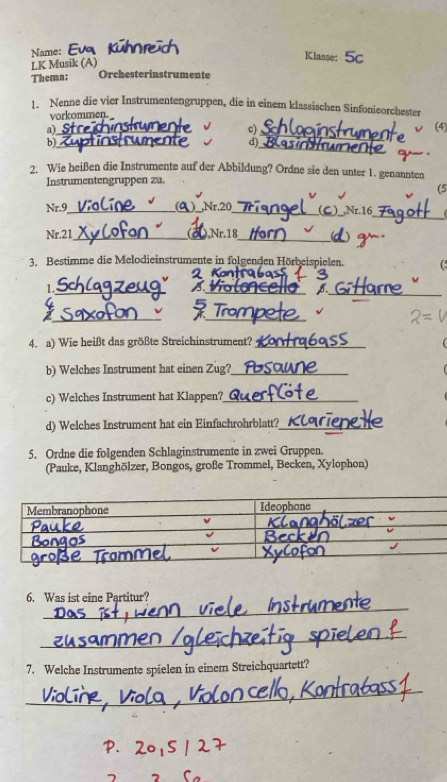 Name: Eva Kühnreich Klasse: 5C
LK Musik (A)
Thema: Orchesterinstrumente
1. Nenne die vier Instrumentengruppen, die in einem klassischen Sinfonieorchester
vorkommen. (4)
a) Streichinstrumente c) Schlaginstrumente
b) Zupfinstrumente d) Blasinstrumente
2. Wie heißen die Instrumente auf der Abbildung? Ordne sie den unter 1. genannten
Instrumentengruppen zu. (5
Nr.9 Violine (a) Nr.20 Triangel (c) Nr.16 Fagott
Nr.21 Xylofon (d) Nr.18 Horn (d)
3. Bestimme die Melodieinstrumente in folgenden Hörbeispielen.
2 Kontrabass f 3
1. Schlagzeug Violoncello Gittarre
4 Saxofon 5 Trompete
4. a) Wie heißt das größte Streichinstrument? Kontrabass
b) Welches Instrument hat einen Zug? Posaune
c) Welches Instrument hat Klappen? Querflöte
d) Welches Instrument hat ein Einfachrohrblatt? Klarienette
5. Ordne die folgenden Schlaginstrumente in zwei Gruppen.
(Pauke, Klanghölzer, Bongos, große Trommel, Becken, Xylophon)
Membranophone Ideophone
Pauke Klanghölzer
Bongos Becken
große Trommel Xylofon
6. Was ist eine Partitur?
Das ist, wenn viele Instrumente
zusammen/gleichzeitig spielen. f
7. Welche Instrumente spielen in einem Streichquartett?
Violine, Viola, Violoncello, Kontrabass f
P. 20,5/27